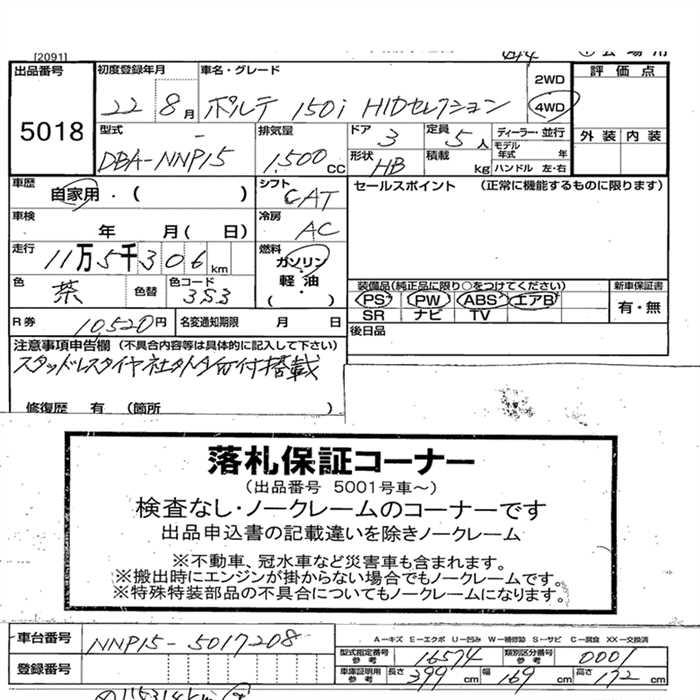 [2091]
出品番号
5018
初度登録年月 車名・グレード
22 8月 ポルテ 150i HIDセレクション
2WD
4WD
評価点
外装 内装
型式 排気量 ドア 定員 ディーラー・並行
DBA-NNP15 1,500CC 3 5人
モデル年式 年
形状 HB 積載 kg ハンドル 左・右
車歴 自家用・( )
シフト CAT
セールスポイント (正常に機能するものに限ります)
車検 年 月(日)
冷房 AC
走行 11万5千306km
燃料 ガソリン・軽油( )
色 茶 色替 色コード 3S3
装備品(純正品に限り○をつけてください) 新車保証書
PS PW ABS エアB 有・無
SR ナビ TV
R券 10,520円 名変通知期限 月 日
後日品
注意事項申告欄 (不具合内容等は具体的に記入して下さい)
修復歴 有 (箇所 )
落札保証コーナー
(出品番号 5001号車~)
検査なし・ノークレームのコーナーです
出品申込書の記載違いを除きノークレーム
※不動車、冠水車など災害車も含まれます。
※搬出時にエンジンが掛からない場合でもノークレームです。
※特殊特装部品の不具合についてもノークレームになります。
A-キズ E-エクボ U-凹み W-補修跡 S-サビ C-腐食 XX-交換済
車台番号 NNP15-5017208
型式指定番号 参考 16574 類別区分番号 参考 0001
登録番号
車庫証明用 参考 長さ 399cm 幅 169cm 高さ 172cm